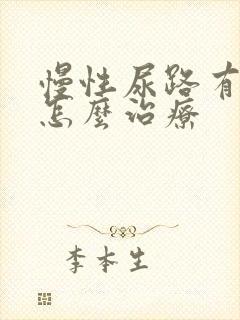 慢性尿路有
怎麼治療
李本生